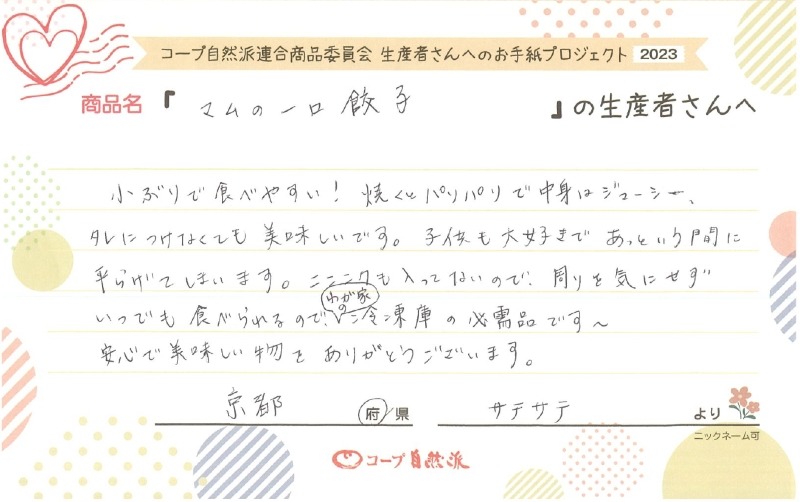 コープ自然派連合商品委員会 生産者さんへのお手紙プロジェクト 2023
商品名『 マムの一口餃子 』の生産者さんへ
小ぶりで食べやすい！焼くとパリパリで中身はジューシー、
タレにつけなくても美味しいです。子供も大好きであっという間に
平らげてしまいます。ニンニクも入ってないので、周りを気にせず
いつでも食べられるので、わが家の冷凍庫の必需品です〜
安心で美味しい物をありがとうございます。
京都 府/県 サテサテ より
ニックネーム可
コープ自然派